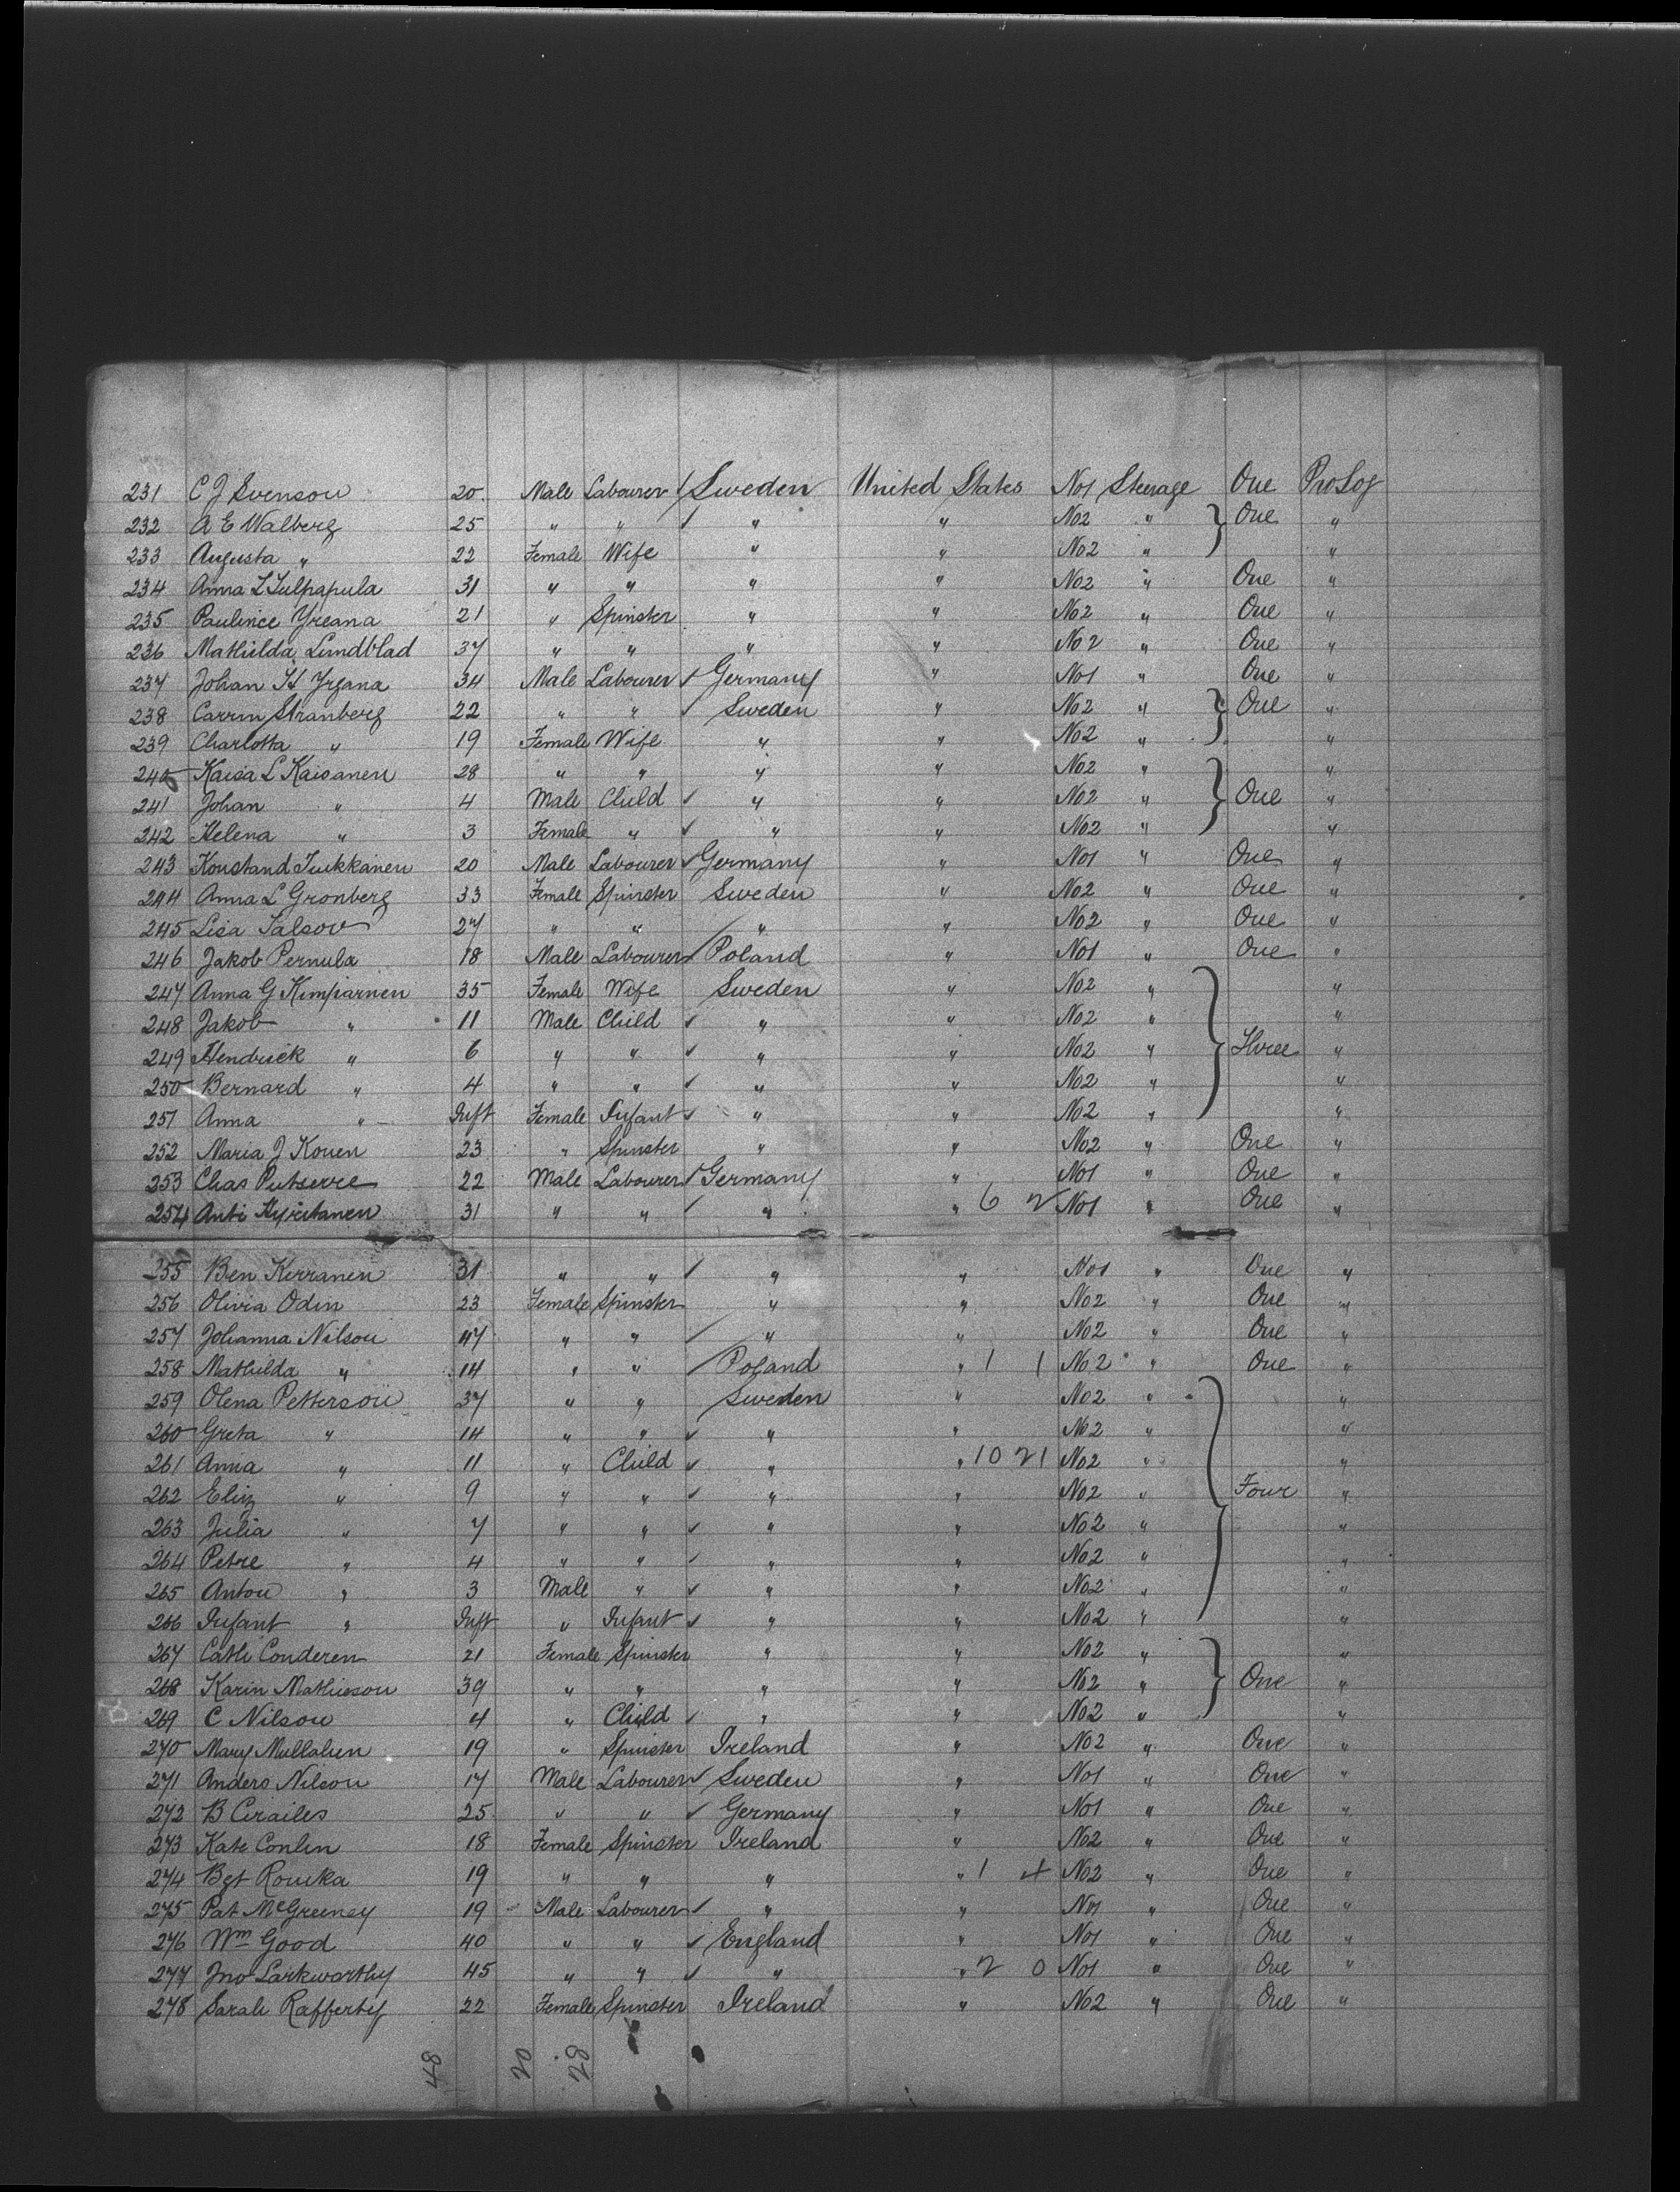 231 C J Svenson 20 Male Labourer Sweden United States No1 Steerage One Pro Soj
232 A E Walberg 25 " " " " No2 " One "
233 Augusta " 22 Female Wife " " No2 " "
234 Anna L Tulpapula 31 " " " " No2 " One "
235 Paulince Yreana 21 " Spinster " " No2 " One "
236 Mathilda Lundblad 37 " " " " No2 " One "
237 Johan H Yreana 34 Male Labourer Germany " No1 " One "
238 Carrin Stranberg 22 " " Sweden " No2 " One "
239 Charlotta " 19 Female Wife " " No2 " "
240 Kaisa L Kaisanen 28 " " " " No2 " "
241 Johan " 4 Male Child " " No2 " One "
242 Helena " 3 Female " " " No2 " "
243 Konstand Tukkanen 20 Male Labourer Germany " No1 " One "
244 Anna L Gronberg 33 Female Spinster Sweden " No2 " One "
245 Lisa Talsov 27 " " " " No2 " One "
246 Jakob Pernula 18 Male Labourer Poland " No1 " One "
247 Anna G Kimparnen 35 Female Wife Sweden " No2 " "
248 Jakob " 11 Male Child " " No2 " "
249 Hendrick " 6 " " " " No2 " Three "
250 Bernard " 4 " " " " No2 " "
251 Anna " Inft Female Infant " " No2 " "
252 Maria J Konen 23 " Spinster " " No2 " One "
253 Chas 22 Male Labourer Germany " No1 " One "
254 Anti 31 " " " " 6 2 No1 " One "
255 Ben Kerranen 31 " " " " No1 " One "
256 Olivia Odin 23 Female Spinster " " No2 " One "
257 Johanna Nilson 47 " " " " No2 " One "
258 Mathilda " 14 " " Poland " 1 1 No2 " One "
259 Olena Petterson 37 " " Sweden " No2 " "
260 Greta " 14 " " " " No2 " "
261 Anna " 11 " Child " " 10 21 No2 " "
262 Eliz " 9 " " " " No2 " Four "
263 Julia " 7 " " " " No2 " "
264 Petre " 4 " " " " No2 " "
265 Anton " 3 Male " " " No2 " "
266 Infant " Inft " Infant " " No2 " "
267 Cath Conderen 21 Female Spinster " " No2 " "
268 Karin Mathieson 39 " " " " No2 " One "
269 C Nilson 4 " Child " " No2 " "
270 Mary Mullahen 19 " Spinster Ireland " No2 " One "
271 Anders Nilson 17 Male Labourer Sweden " No1 " One "
272 B Cirailes 25 " " Germany " No1 " One "
273 Kate Conlin 18 Female Spinster Ireland " No2 " One "
274 Bgt Rourka 19 " " " " 1 4 No2 " One "
275 Pat McGreeney 19 Male Labourer " " No1 " One "
276 Wm Good 40 " " England " No1 " One "
277 Jno Larkworthy 45 " " " " 2 0 No1 " One "
278 Sarah Rafferty 22 Female Spinster Ireland " No2 " One "
48 20 28